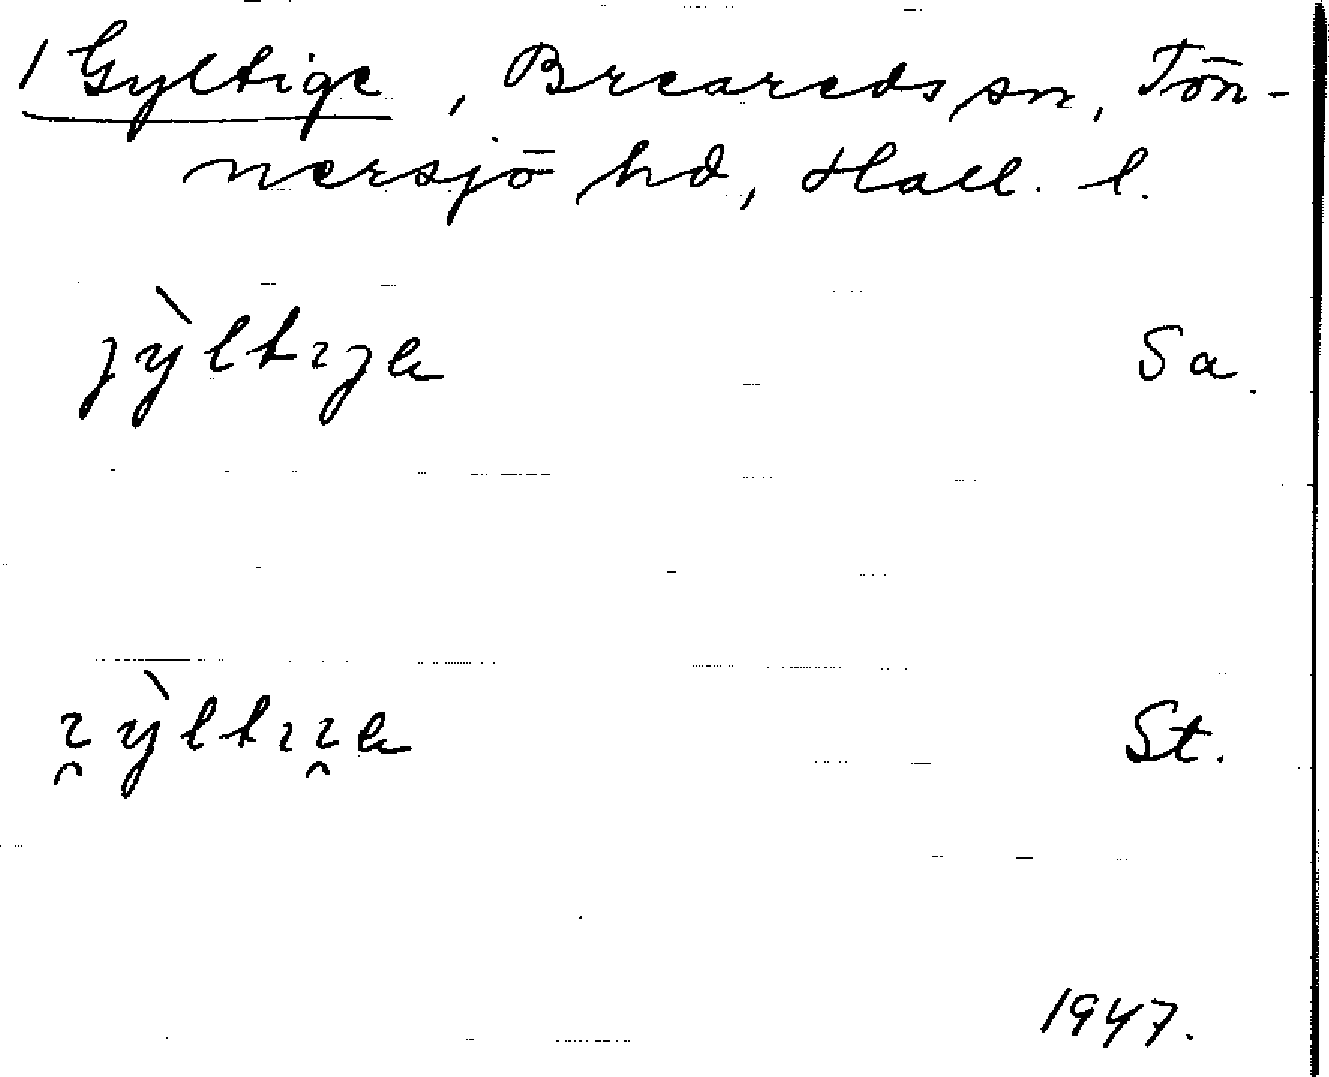 1 Gyltige, Breareds sn, Tön-
nersjö hd, Hall. l.
jỳltıja Sa.
ı̯ỳltıı̯a St.
1947.